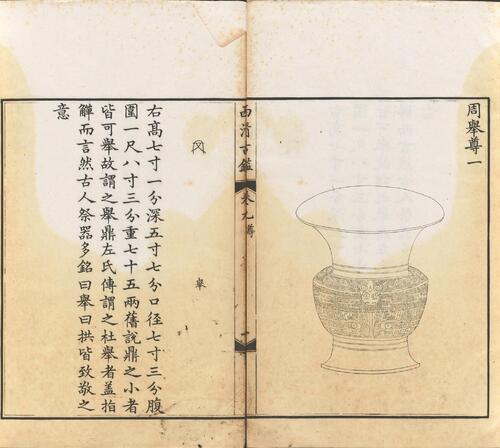 周舉尊一
西清古鑑
卷九尊
一
舉
右高七寸一分深五寸七分口徑七寸三分腹
圍一尺八寸三分重七十五兩舊說鼎之小者
皆可舉故謂之舉鼎左氏傳謂之杜舉者蓋指
觶而言然古人祭器多銘曰舉曰拱皆致敬之
意